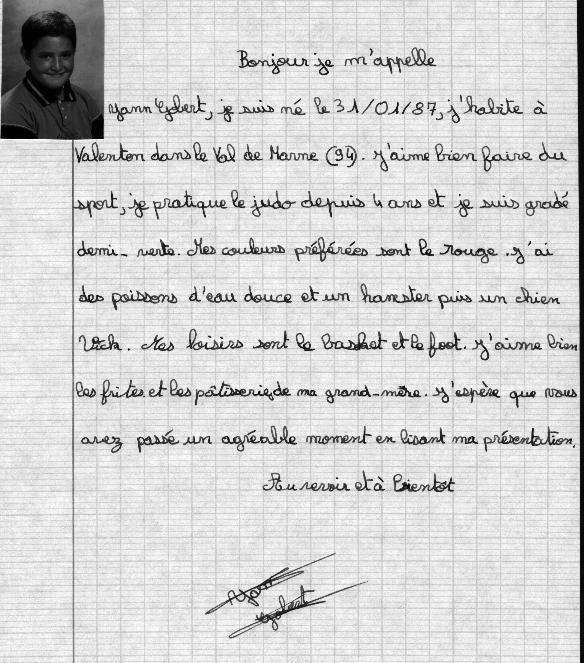 Bonjour je m'appelle
Yann Gobert, je suis né le 31/01/87, j'habite à
Valenton dans le Val de Marne (94). J'aime bien faire du
sport, je pratique le judo depuis 4 ans et je suis gradé
demi-verte. Mes couleurs préférées sont le rouge. J'ai
des poissons d'eau douce et un hamster puis un chien
. Mes loisirs sont le basket et le foot. J'aime bien
les frites et les pâtisseries de ma grand-mère. J'espère que vous
avez passé un agréable moment en lisant ma présentation.
Au revoir et à bientôt
Yann
Gobert